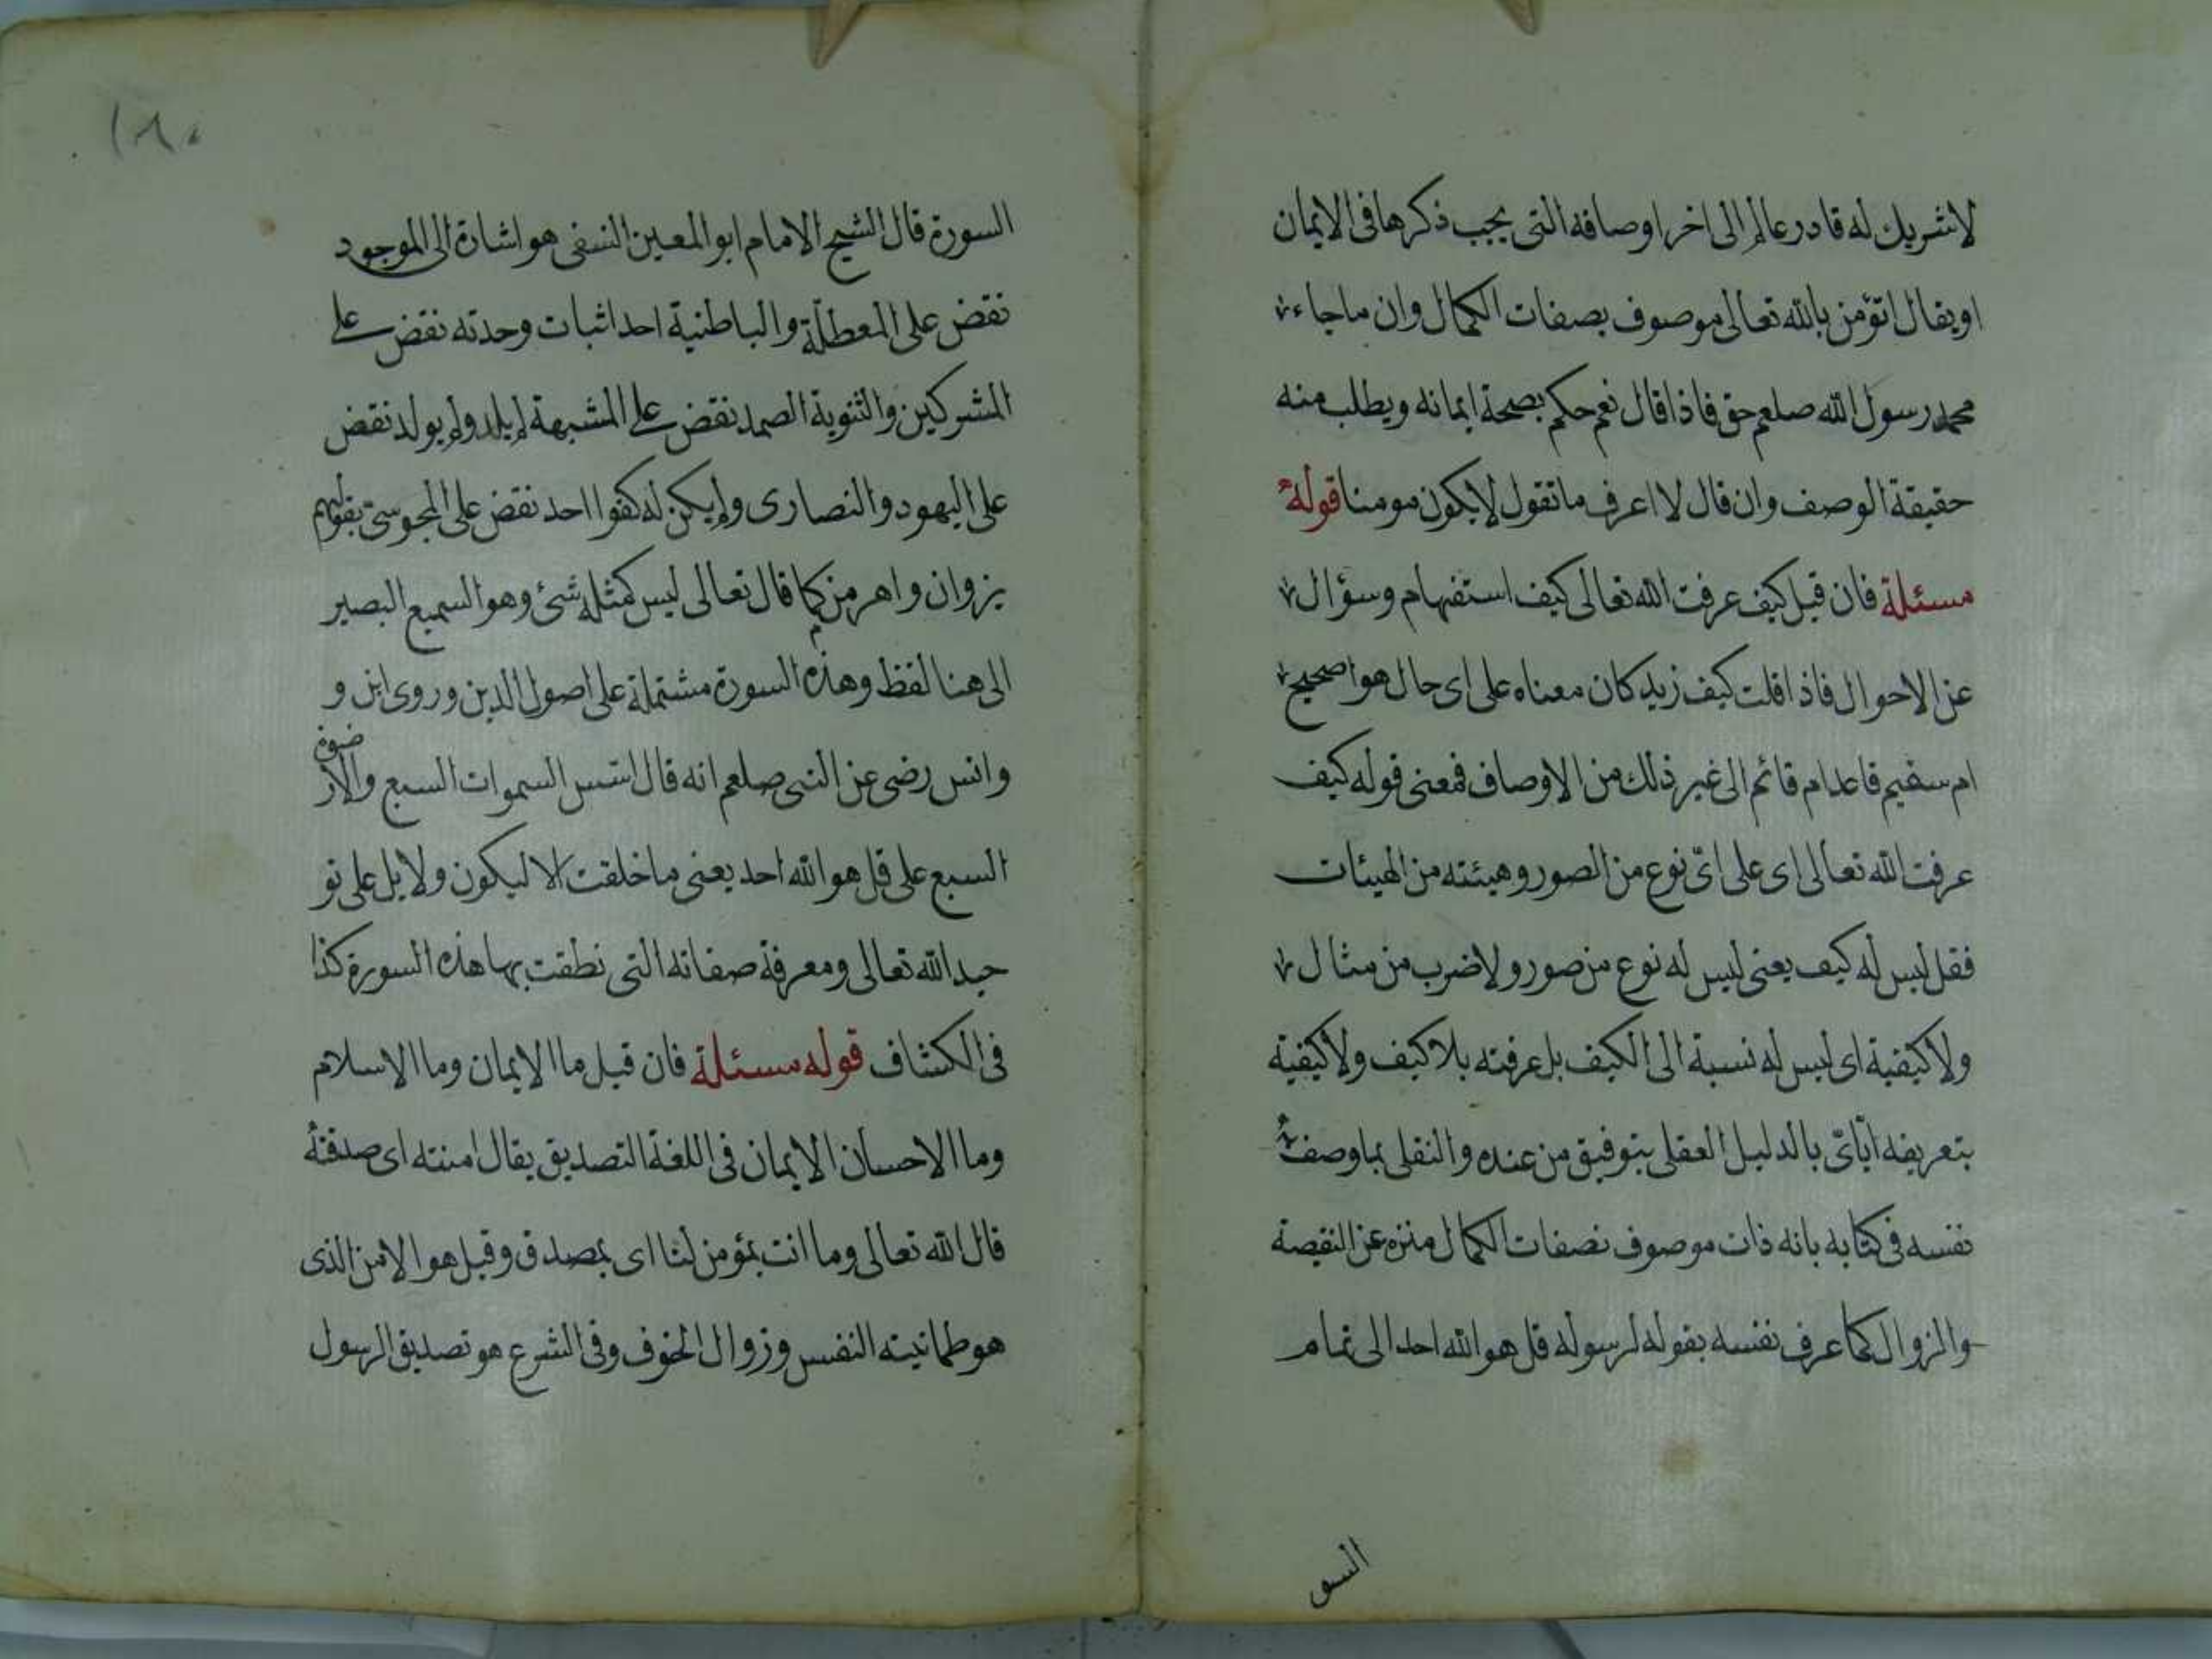 لاشريك له قادر عالم الى اخر اوصافه التى يجب ذكرها فى الايمان
او يقال اتؤمن بالله تعالى موصوف بصفات الكمال وان ماجاء
محمد رسول الله صلعم حق فاذا قال نعم حكم بصحة ايمانه ويطلب منه
حقيقة الوصف وان قال لا اعرف ماتقول لايكون مومنا قوله
مسئلة فان قيل كيف عرفت الله تعالى كيف استفهام وسؤال
عن الاحوال فاذا قلت كيف زيد كان معناه على اى حال هو اصحيح
ام سقيم قاعد ام قائم الى غير ذلك من الاوصاف فمعنى قوله كيف
عرفت الله تعالى اى على اىّ نوع من الصور وهيئته من الهيئات
فقل ليس له كيف يعنى ليس له نوع من صور ولاضرب من مثال
ولاكيفية اى ليس له نسبة الى الكيف بل عرفته بلاكيف ولاكيفية
بتعريفه ايّاىّ بالدليل العقلى بتوفيق من عنده والنقلى بماوصف
نفسه فى كتابه بانه ذات موصوف بصفات الكمال منزه عن النقيصة
والزوال كما عرف نفسه بقوله لرسوله قل هو الله احد الى تمام
السو
١٨٠
السورة قال الشيخ الامام ابو المعين النسفى هو اشارة الى الموجود
نقض على المعطلّة والباطنية احد اثبات وحدته نقض على
المشركين والثنوية الصمد نقض على المشبهة لم يلد ولم يولد نقض
على اليهود والنصارى ولم يكن له كفوا احد نقض على المجوسى بقولهم
يزوان واهرمن كما قال تعالى ليس كمثله شئ وهو السميع البصير
الى هنا لفظ وهذه السورة مشتملة على اصول الدين وروى ابن و
وانس رضى عن النبى صلعم انه قال اسّس السموات السبع والارضون
السبع على قل هو الله احد يعنى ماخلقت الا ليكون ولايل على تو
حيد الله تعالى ومعرفة صفاته التى نطقت بها هذه السورة كذا
فى الكشاف قوله مسئلة فان قيل ما الايمان وما الاسلام
وما الاحسان الايمان فى اللغة التصديق يقال امنته اى صدقته
قال الله تعالى وما انت بمؤمن لنا اى بمصدق وقيل هو الامن الذى
هو طمانينته النفس وزوال الخوف وفى الشرع هو تصديق الرسول